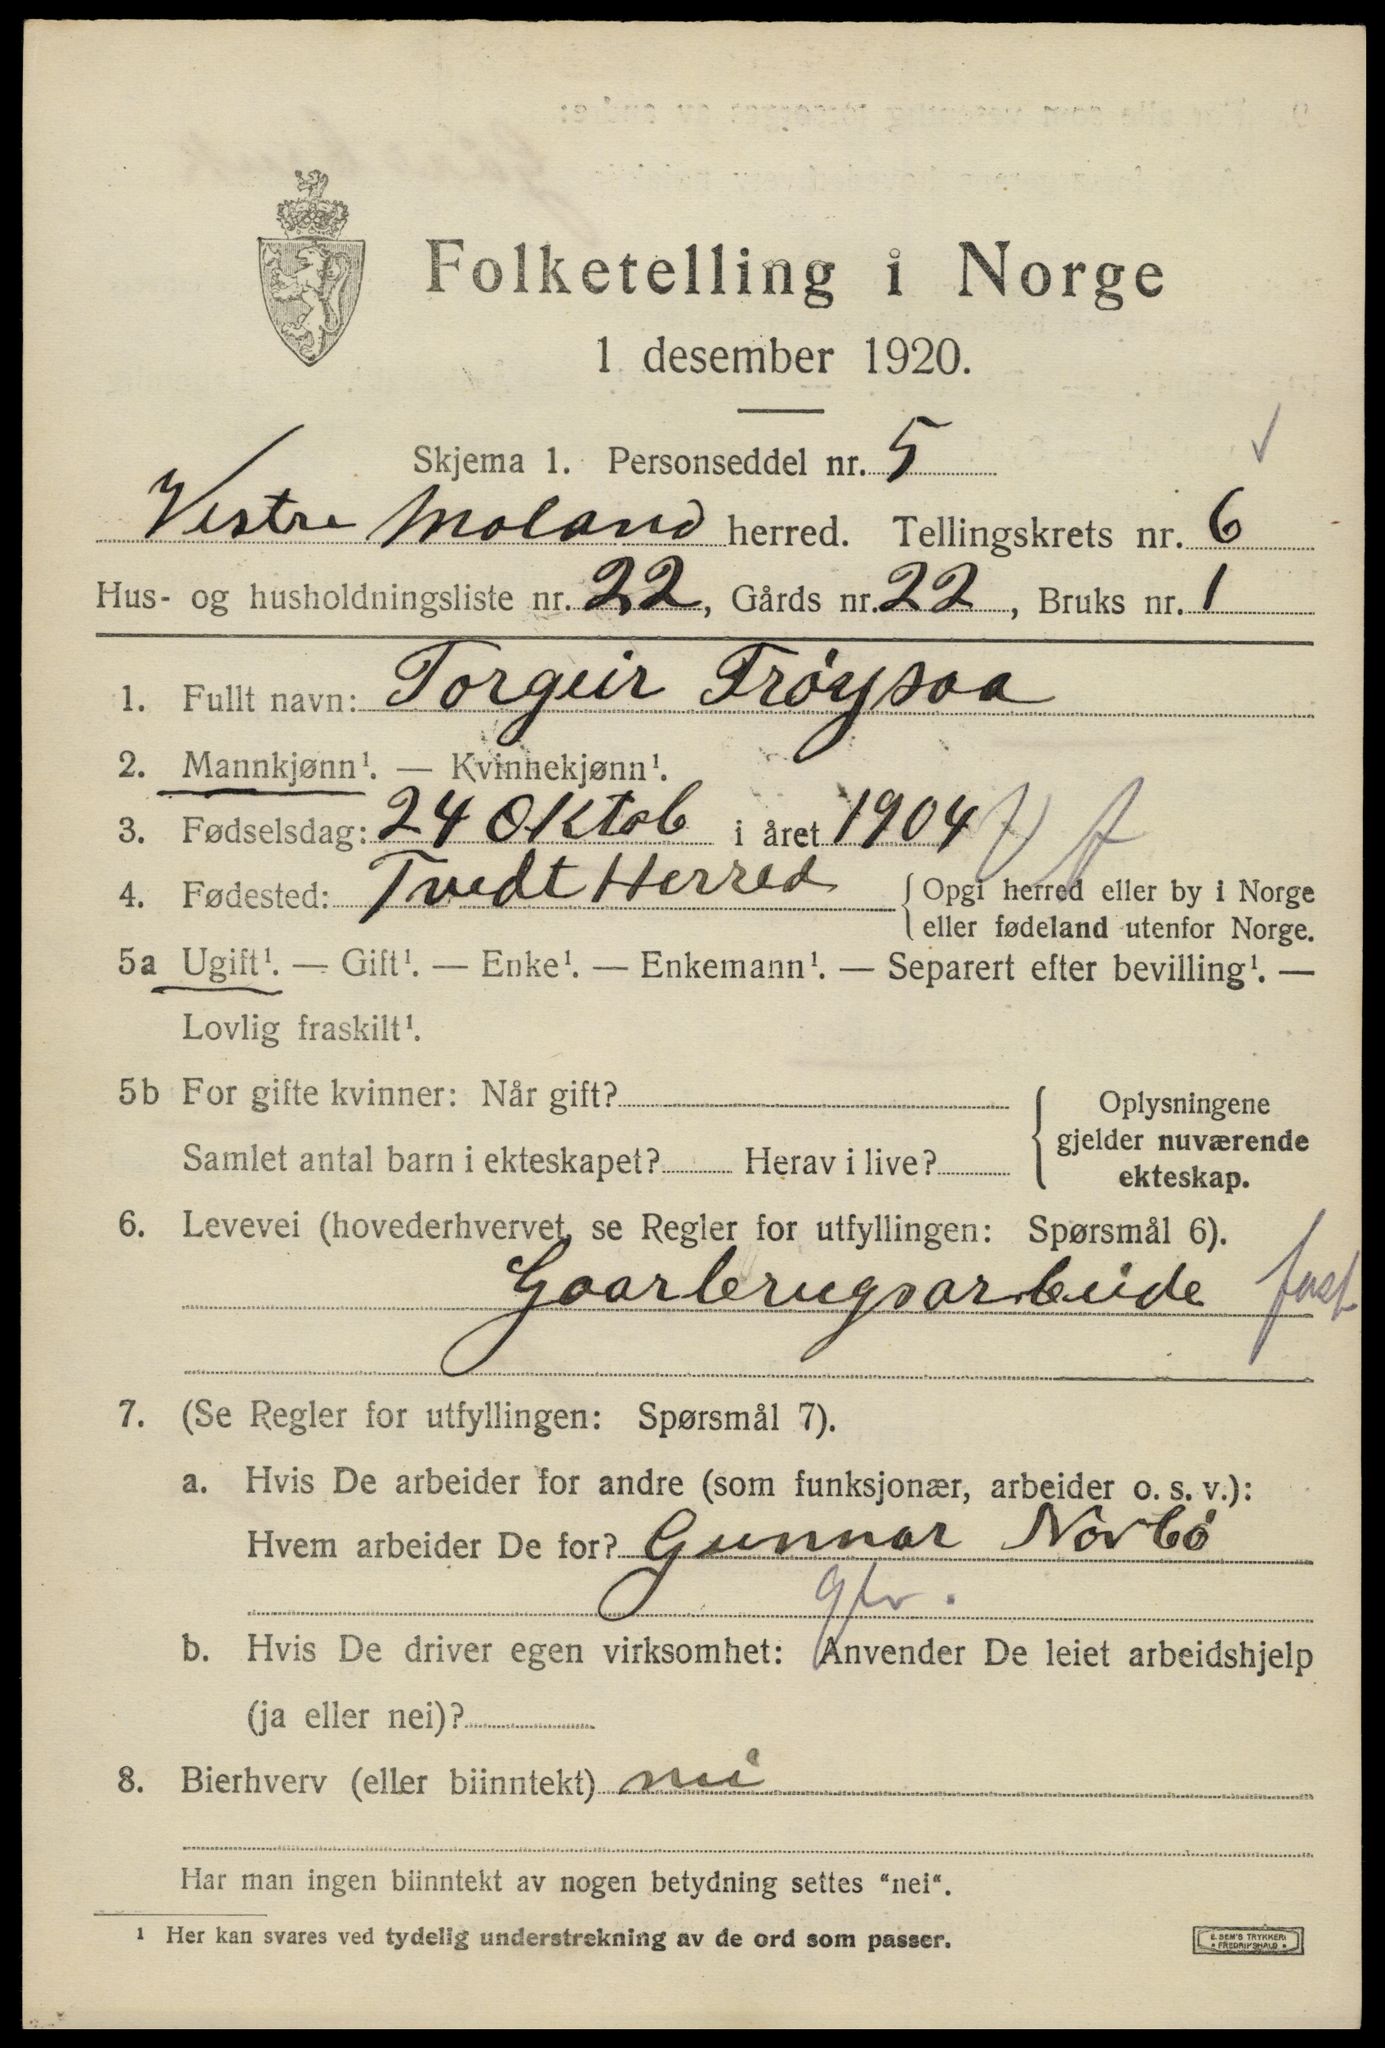 Folketelling i Norge
1 desember 1920.
Skjema 1. Personseddel nr. 5
Vestre Moland herred. Tellingskrets nr. 6
Hus- og husholdningsliste nr. 22, Gårds nr. 22, Bruks nr. 1
1. Fullt navn: Torgeir Frøysaa
2. Mannkjønn¹. — Kvinnekjønn¹.
3. Fødselsdag: 24 Oktob i året 1904
4. Fødested: Tvedt Herred { Opgi herred eller by i Norge
eller fødeland utenfor Norge.
5a Ugift¹. — Gift¹. — Enke¹. — Enkemann¹. — Separert efter bevilling¹. —
Lovlig fraskilt¹.
5b For gifte kvinner: Når gift? { Oplysningene
gjelder nuværende
Samlet antal barn i ekteskapet? Herav i live?
ekteskap.
6. Levevei (hovederhvervet, se Regler for utfyllingen: Spørsmål 6).
Gaarbrugsarbeide fast
7. (Se Regler for utfyllingen: Spørsmål 7).
a. Hvis De arbeider for andre (som funksjonær, arbeider o. s. v.):
Hvem arbeider De for? Gunnar Norbø
b. Hvis De driver egen virksomhet: Anvender De leiet arbeidshjelp
(ja eller nei)?
8. Bierhverv (eller biinntekt) nei
Har man ingen biinntekt av nogen betydning settes "nei".
¹ Her kan svares ved tydelig understrekning av de ord som passer.
E. SEM'S TRYKKERI
• FREDRIKSHALD •